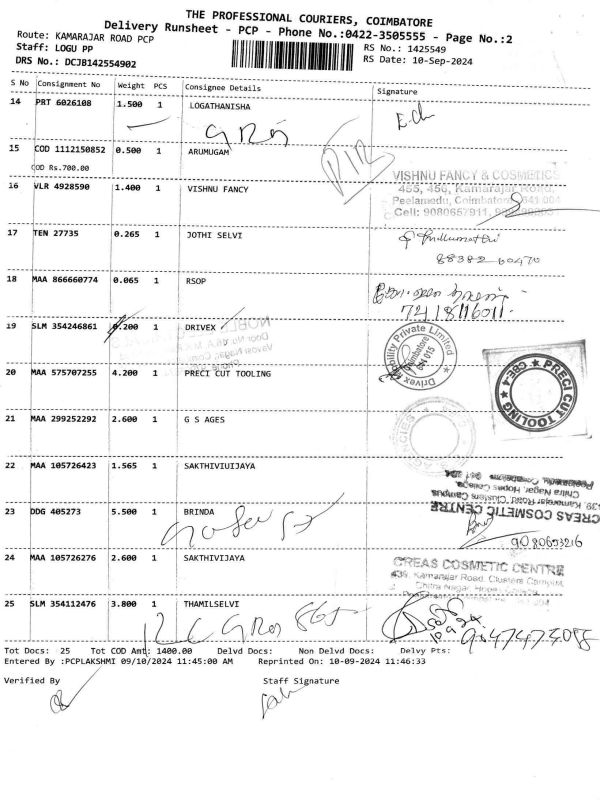 THE PROFESSIONAL COURIERS, COIMBATORE
Delivery Runsheet - PCP - Phone No.:0422-3505555 - Page No.:2
Route: KAMARAJAR ROAD PCP
Staff: LOGU PP
DRS No.: DCJB142554902
RS No.: 1425549
RS Date: 10-Sep-2024
S No Consignment No Weight PCS Consignee Details Signature
14 PRT 6026108 1.500 1 LOGATHANISHA
15 COD 1112150852 0.500 1 ARUMUGAM
COD Rs.700.00
VISHNU FANCY & COSMETICS
455, 456, Kamarajar Road,
Peelamedu, Coimbatore 641 004
Cell: 9080657911,
16 VLR 4928590 1.400 1 VISHNU FANCY
17 TEN 27735 0.265 1 JOTHI SELVI
88382 60470
18 MAA 866660774 0.065 1 RSOP
7418116011
19 SLM 354246861 0.200 1 DRIVEX
Drivex Mobility Private Limited
Coimbatore
641 015
20 MAA 575707255 4.200 1 PRECI CUT TOOLING
PRECI CUT TOOLING
CBE-4
21 MAA 299252292 2.600 1 G S AGES
AGENCIES
22 MAA 105726423 1.565 1 SAKTHIVIUIJAYA
CREAS COSMETIC CENTRE
439, Kamarajar Road, Clusters Campus,
Chitra Nagar, Hopes College,
23 DDG 405273 5.500 1 BRINDA
9080653216
24 MAA 105726276 2.600 1 SAKTHIVIJAYA
CREAS COSMETIC CENTRE
439, Kamarajar Road, Clusters Campus,
Chitra Nagar, Hopes College,
25 SLM 354112476 3.800 1 THAMILSELVI
Tot Docs: 25 Tot COD Amt: 1400.00 Delvd Docs: Non Delvd Docs: Delvy Pts:
Entered By :PCPLAKSHMI 09/10/2024 11:45:00 AM Reprinted On: 10-09-2024 11:46:33
Verified By Staff Signature